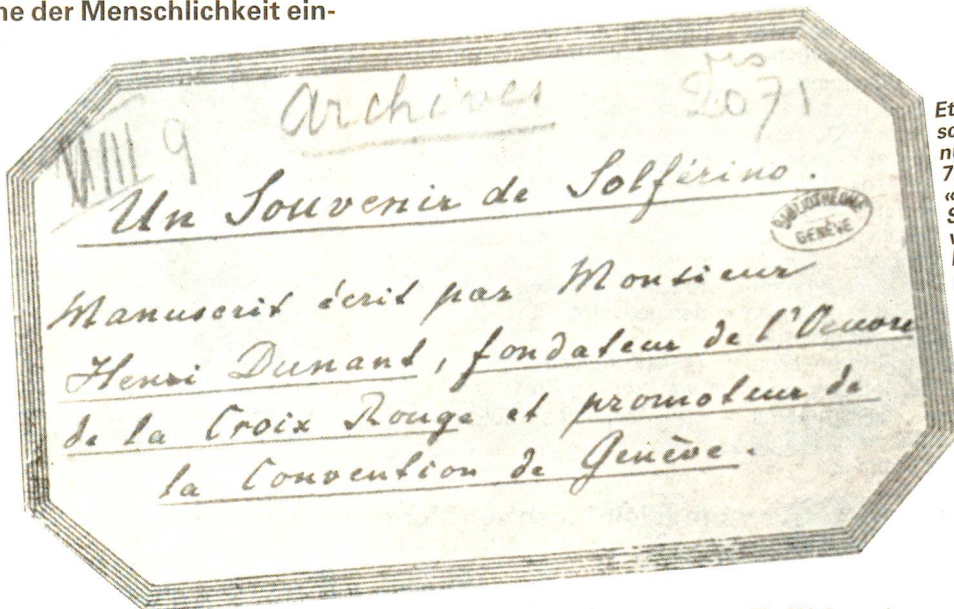 ne der Menschlichkeit ein-
Archives
ms
2071
VIII 9
Un Souvenir de Solférino.
BIBLIOTHEQUE
GENÈVE
Manuscrit écrit par Monsieur
Henri Dunant, fondateur de l'Oeuvre
de la Croix Rouge et promoteur de
la Convention de Genève.
Et
sc
7
«
S